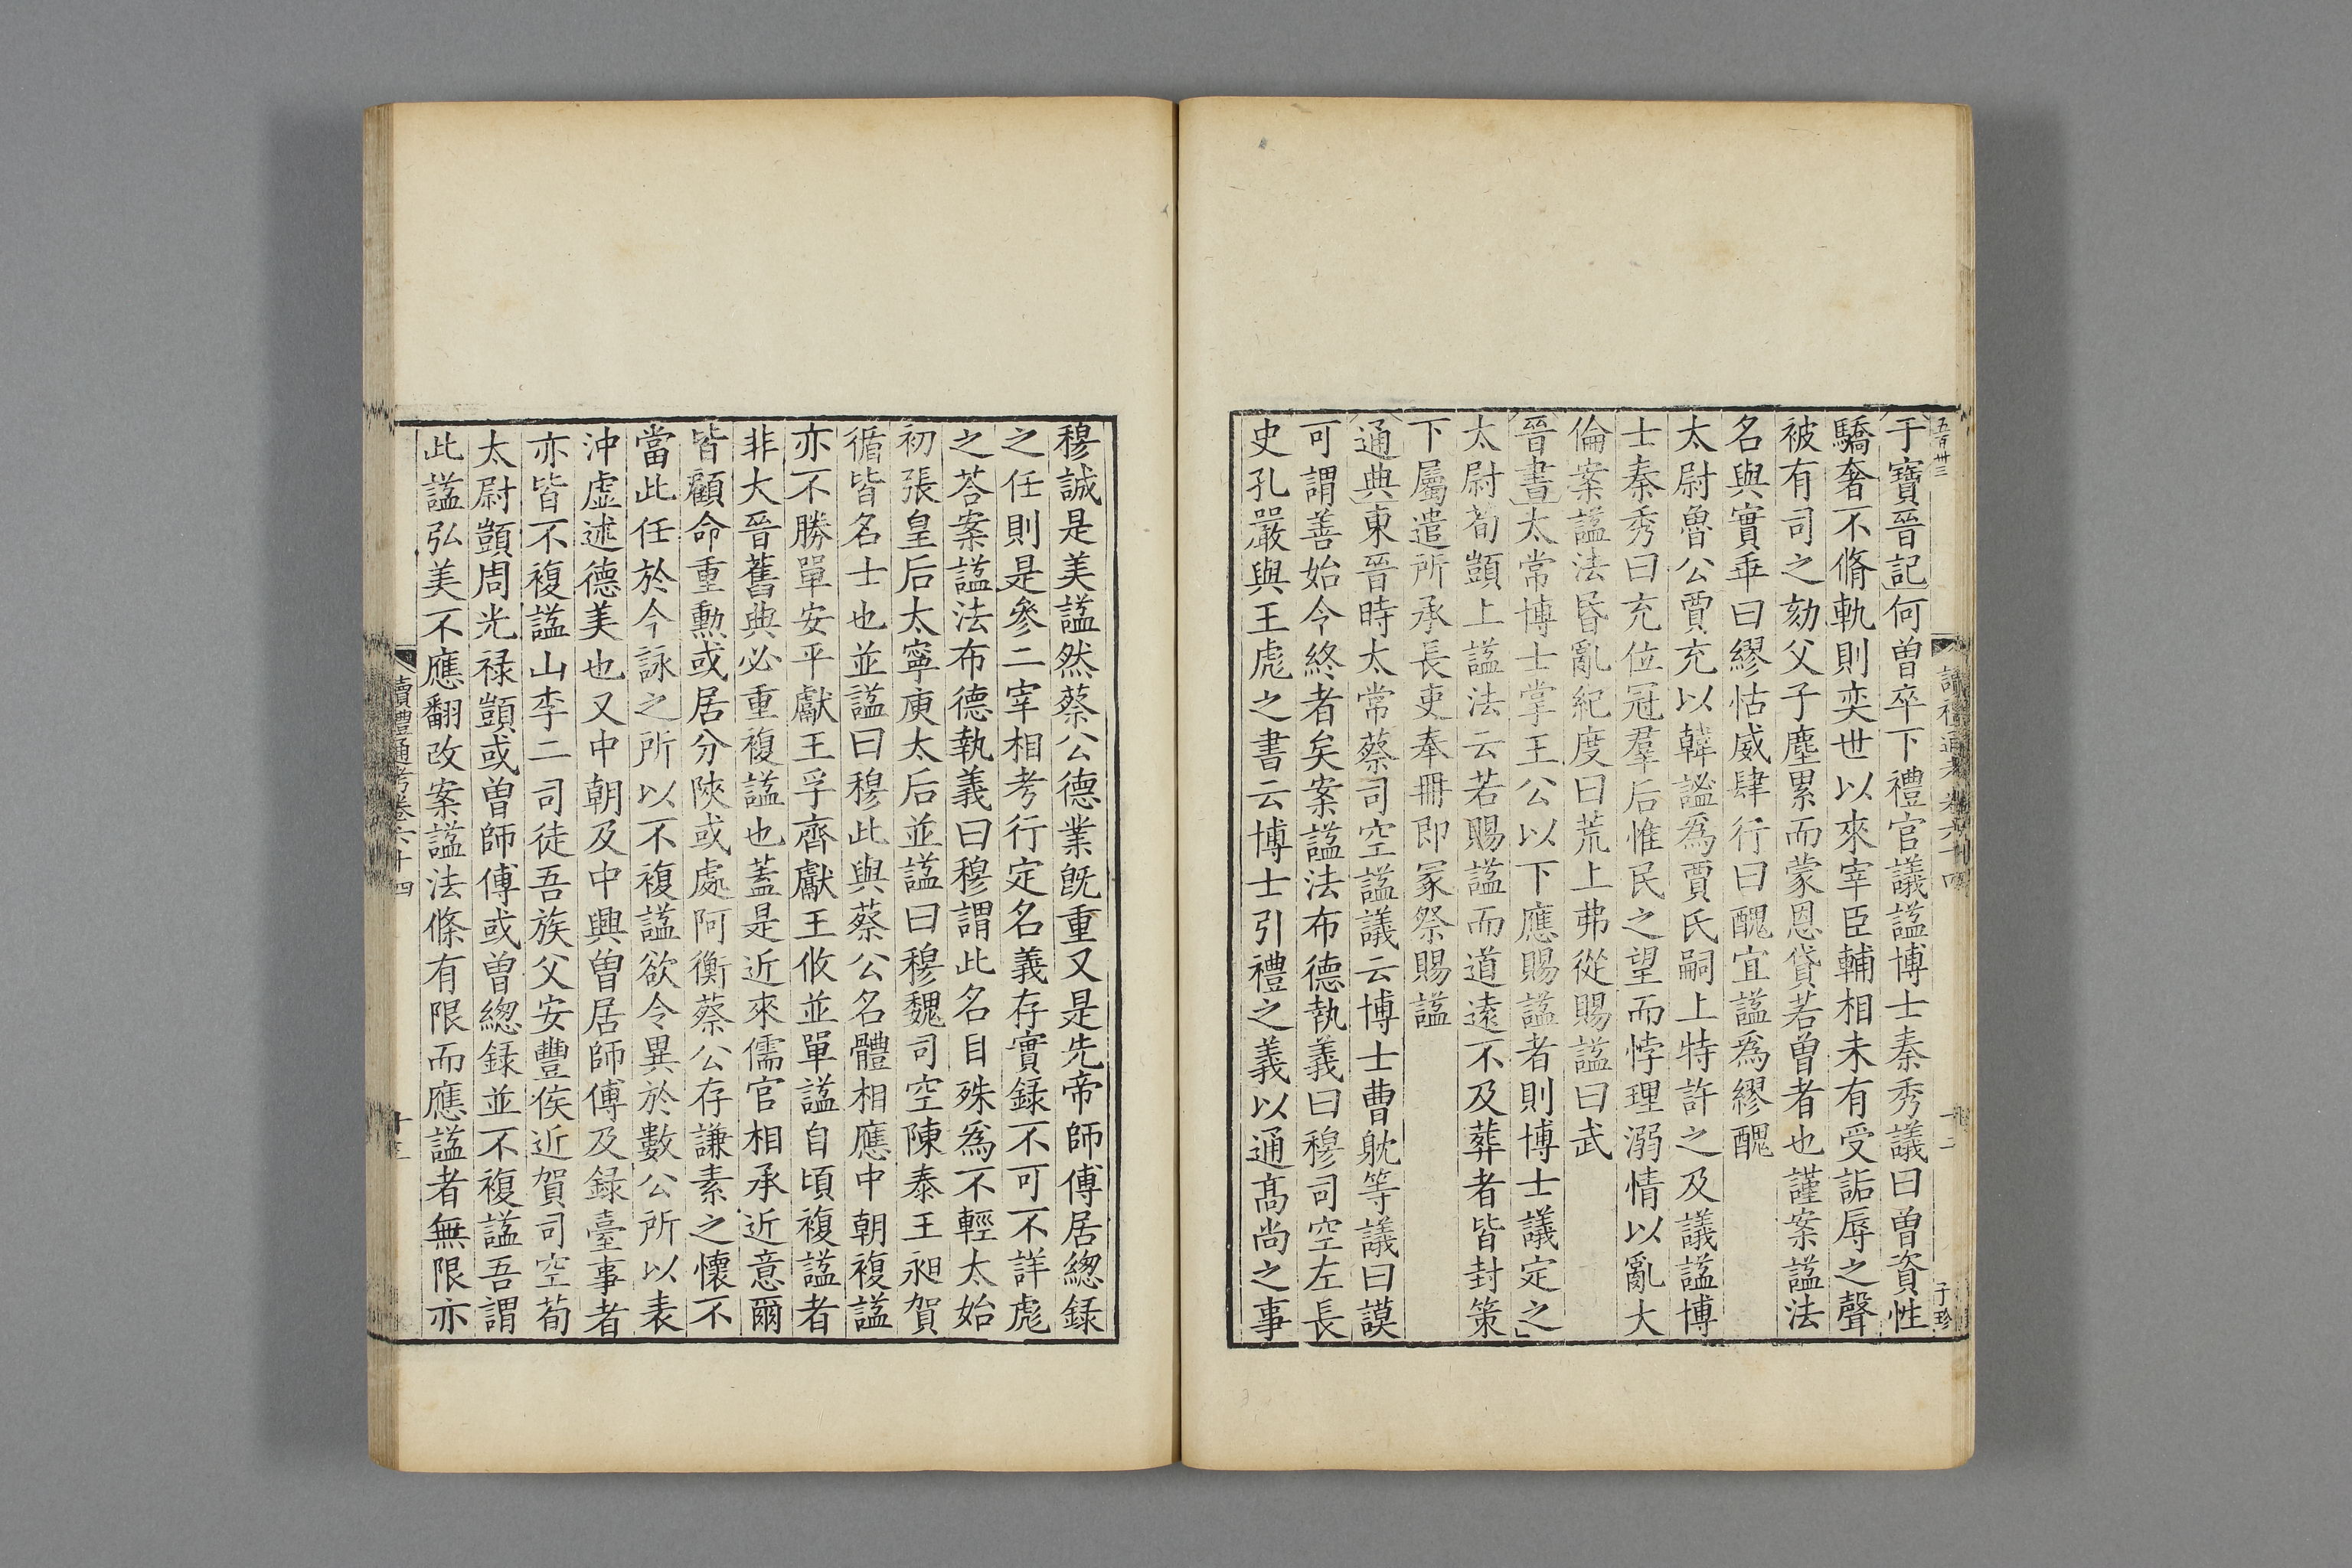 五百卅三
讀禮通考卷六十四
十二
子珍
于寶晉記何曾卒下禮官議諡博士秦秀議曰曾資性
驕奢不脩軌則奕世以來宰臣輔相未有受詬辱之聲
被有司之劾父子塵累而蒙恩貸若曾者也謹案諡法
名與實乖曰繆怙威肆行曰醜宜諡為繆醜
太尉魯公賈充以韓謐為賈氏嗣上特許之及議諡博
士秦秀曰充位冠羣后惟民之望而悖理溺情以亂大
倫案諡法昬亂紀度曰荒上弗從賜諡曰武
晉書太常博士掌王公以下應賜諡者則博士議定之
太尉荀顗上諡法云若賜諡而道遠不及葬者皆封策
下屬遣所承長吏奉冊即冢祭賜諡
通典東晉時太常蔡司空諡議云博士曹躭等議曰謨
可謂善始令終者矣案諡法布德執義曰穆司空左長
史孔嚴與王彪之書云博士引禮之義以通髙尚之事
穆誠是美諡然蔡公德業旣重又是先帝師傅居緫録
之任則是參二宰相考行定名義存實録不可不詳彪
之荅案諡法布德執義曰穆謂此名目殊為不輕太始
初張皇后太寧庾太后並諡曰穆魏司空陳泰王昶賀
循皆名士也並諡曰穆此與蔡公名體相應中朝複諡
亦不勝單安平獻王孚齊獻王攸並單諡自頃複諡者
非大晉舊典必重複諡也蓋是近來儒官相承近意爾
皆顧命重勲或居分陝或處阿衡蔡公存謙素之懷不
當此任於今詠之所以不複諡欲令異於數公所以表
沖虛述德美也又中朝及中興曾居師傅及録臺事者
亦皆不複諡山李二司徒吾族父安豐侯近賀司空荀
太尉顗周光禄顗或曾師傅或曾緫録並不複諡吾謂
此諡弘美不應翻改案諡法條有限而應諡者無限亦
讀禮通考卷六十四
十三